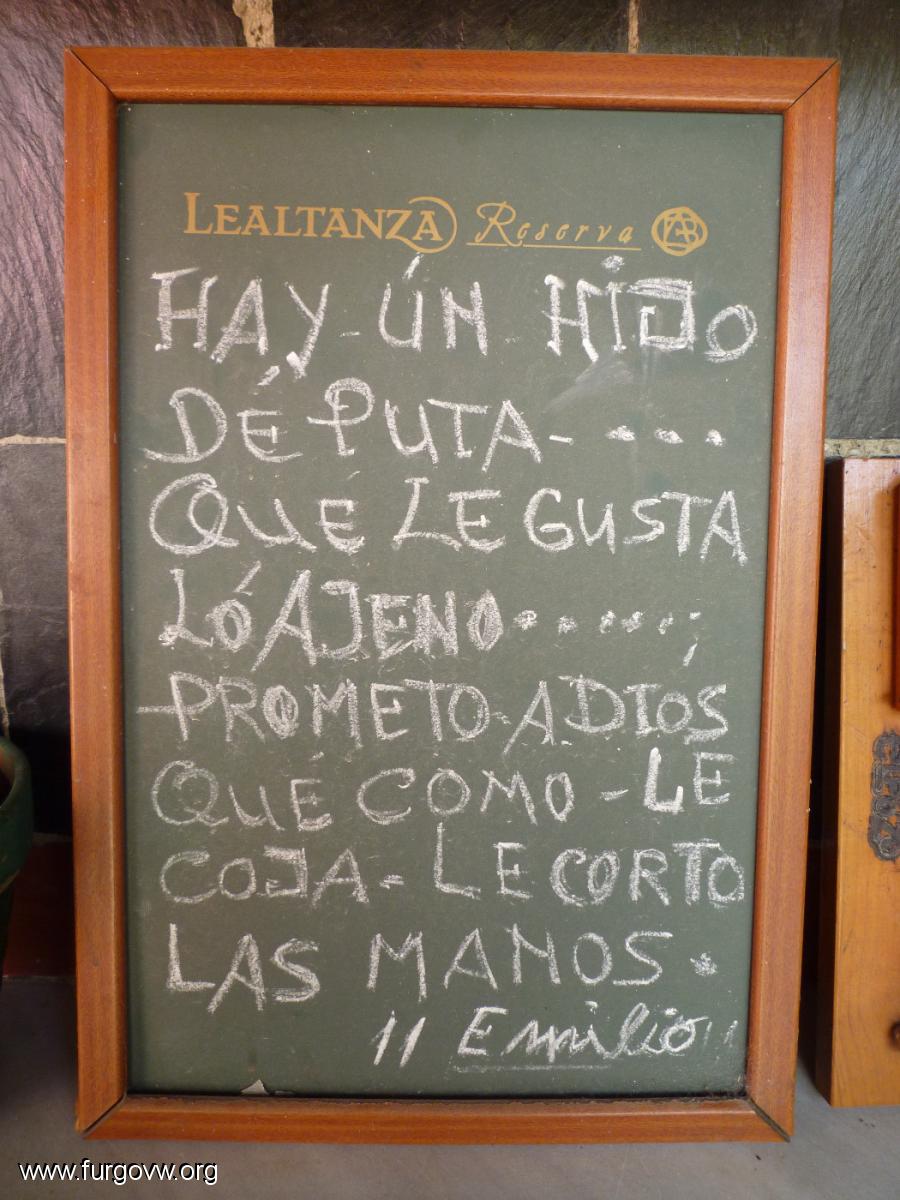 LEALTANZA Reserva
HAY - ÚN HIJO
DÉ PUTA - ....
QUÉ LE GUSTA
LÓ AJENO......
- PROMETO A DIÓS
QUÉ COMO - LE
COJA - LE CORTO
LAS MANOS.
" Emilio "
www.furgovw.org